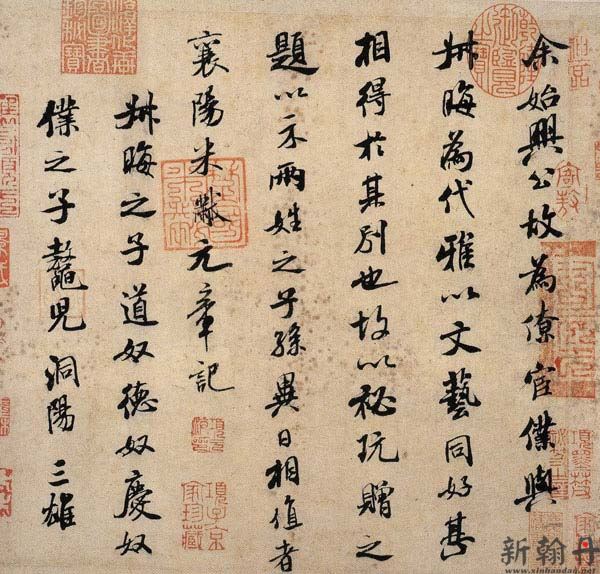 余始興公故為僚宦僕與
叔晦為代雅以文藝同好甚
相得於其別也故以秘玩贈之
題以示兩姓之子孫異日相值者
襄陽米黻元章記
叔晦之子道奴德奴慶奴
僕之子鰲兒洞陽三雄
項子京家珍藏
新翰丹
www.xinhandan.net